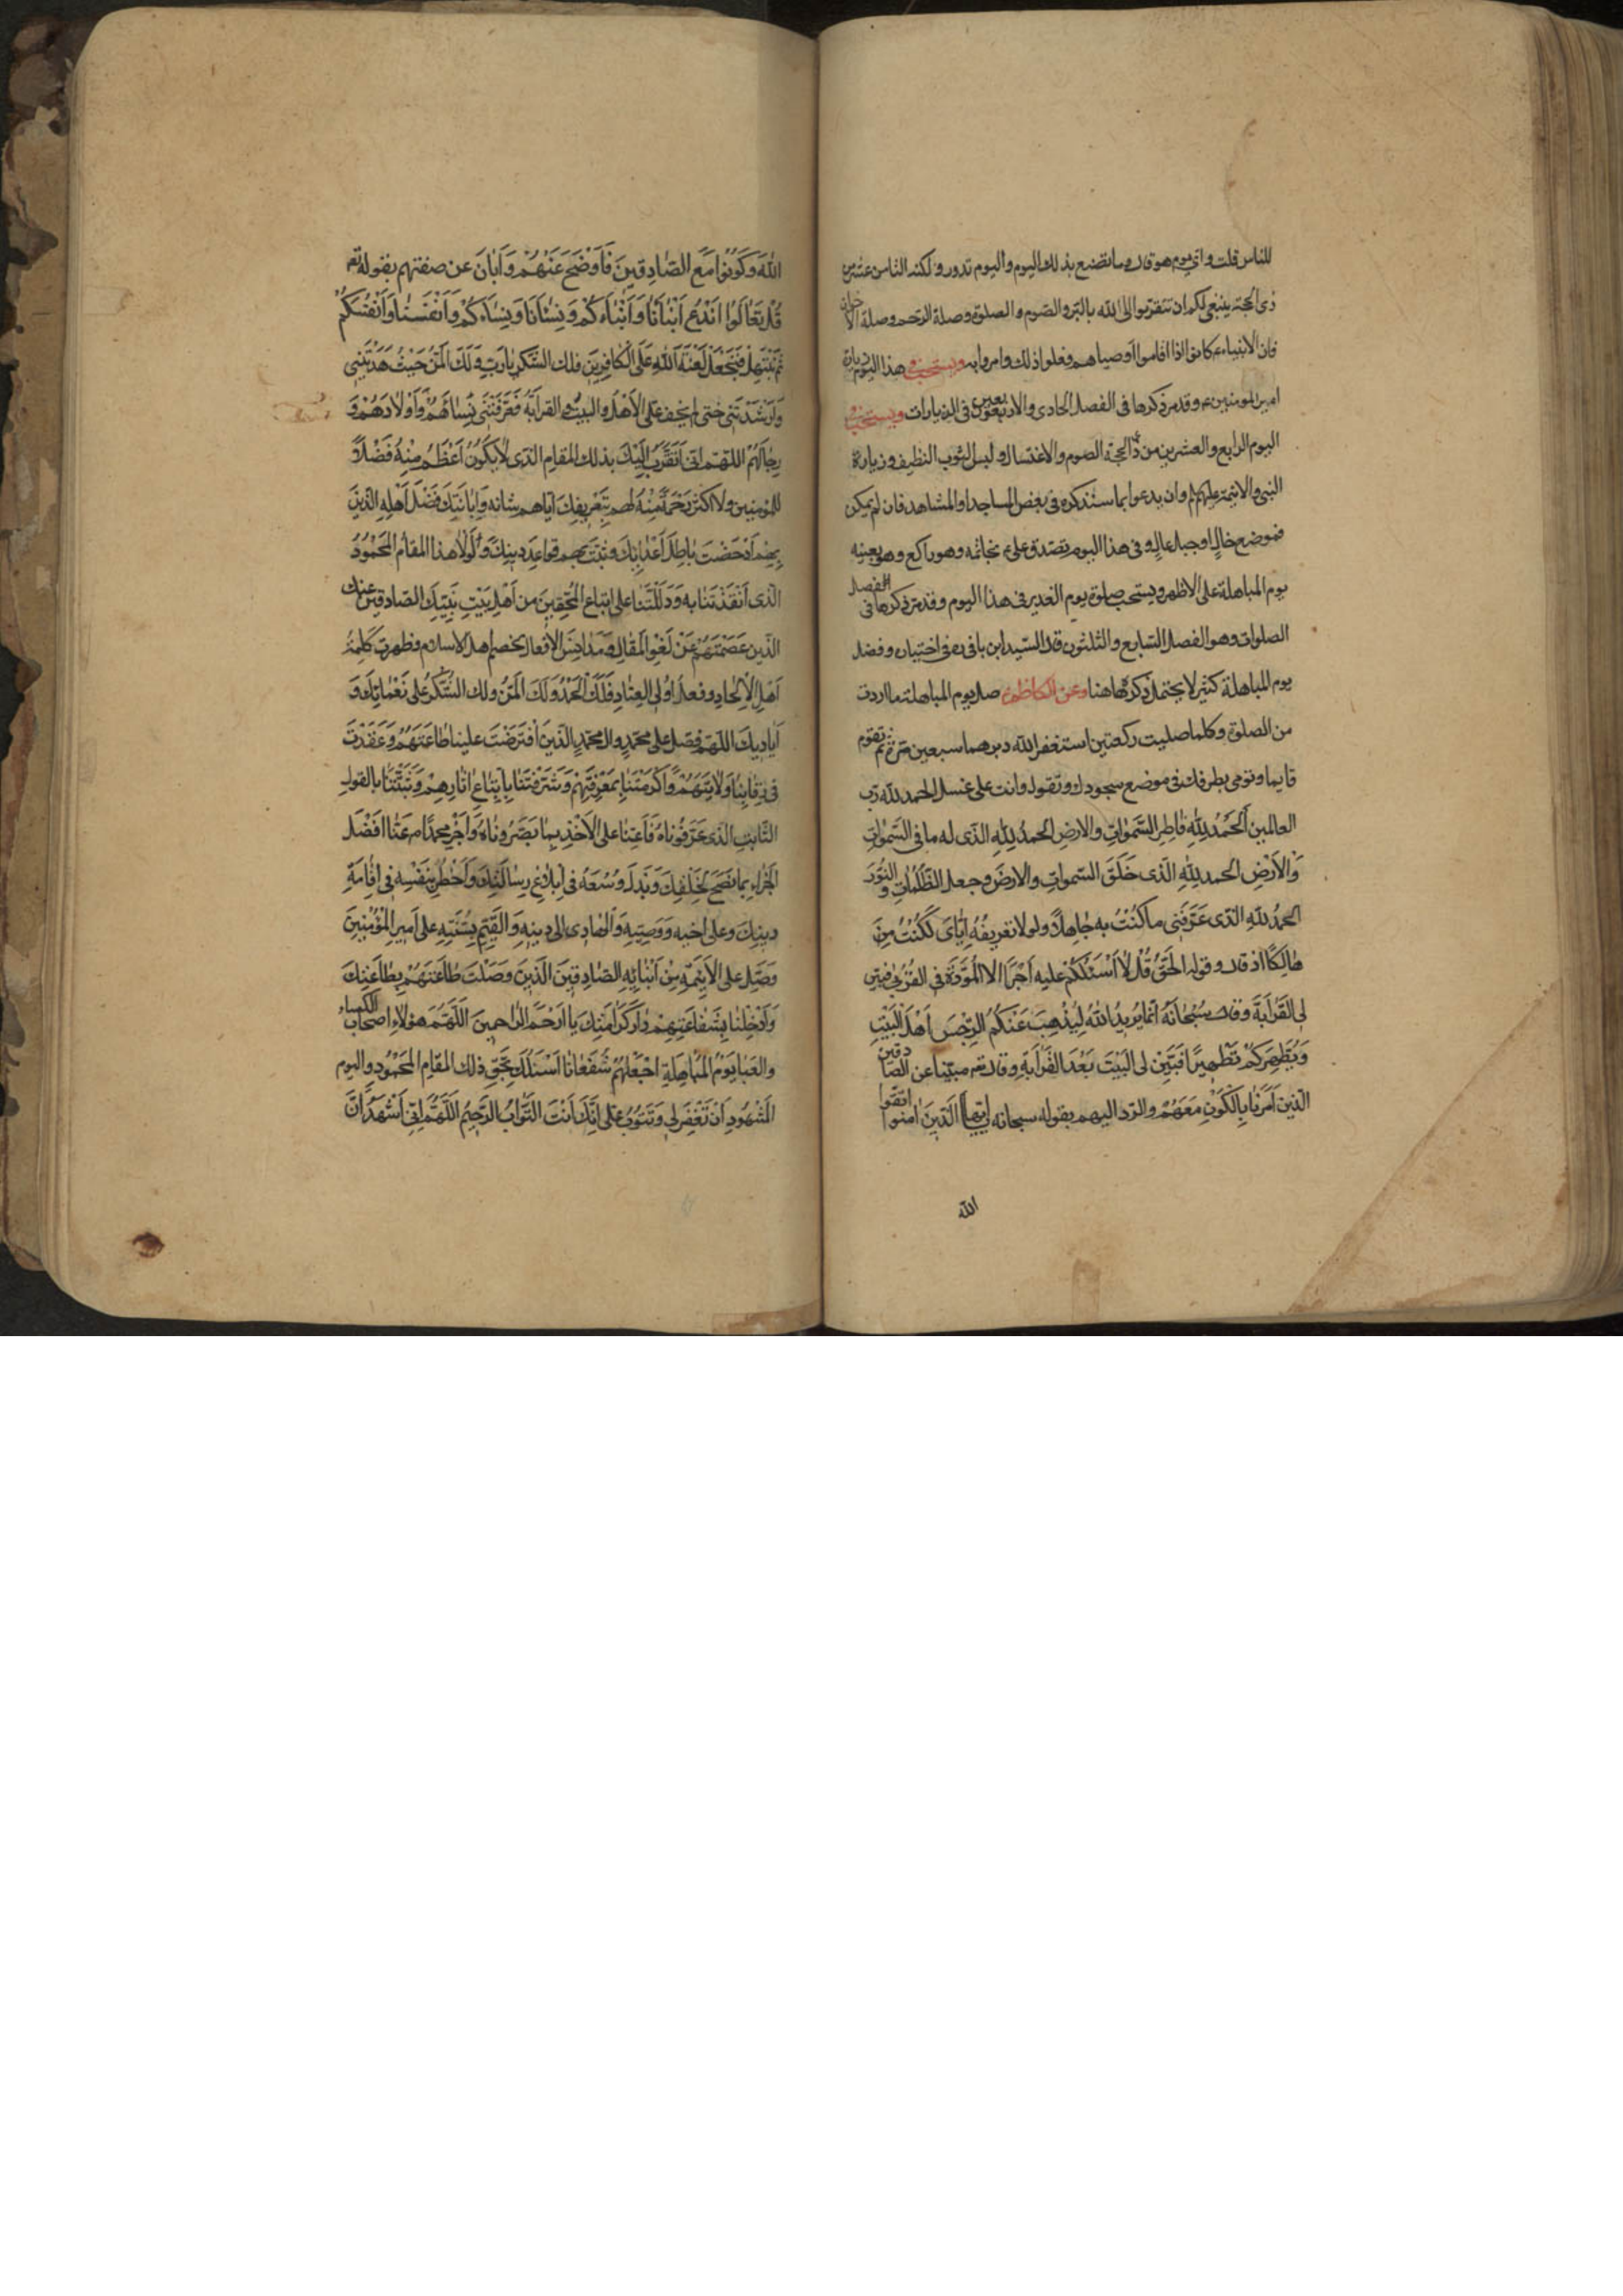 للناس قلت واي يوم هو قال وما تصنع بذلك اليوم واليوم تدور ولكنه الثامن عشر من
ذي الحجة ينبغي لكم ان تتقربوا الى الله بالبر والصوم والصلوة وصلة الرحم وصلة الاخوان
فان الانبياء ع كانوا اذا اقاموا اوصياهم فعلوا ذلك وامروا به ويستحب في هذا اليوم زيارة
امير المومنين ع وقد مر ذكرها في الفصل الحادي والاربعين في الزيارات ويستحب في
اليوم الرابع والعشرين من ذي الحجة الصوم والاغتسال ولبس الثوب النظيف وزيارة
النبي والائمة عليهم لم وان يدعوا بما سنذكره في بعض المساجد او المشاهد فان لم يمكن
فموضع خال او جبل عال وفي هذا اليوم تصدق علي ع بخاتمه وهو راكع وهو بعينه
يوم المباهلة على الاظهر ويستحب صلوة يوم الغدير في هذا اليوم وقد مر ذكرها في الفصل
الصلوات وهو الفصل السابع والثلثون قال السيد ابن باقي ره في اختياره وفضل
يوم المباهلة كثير لا يحتمل ذكره هاهنا وعن الكاظم ع صل يوم المباهلة ما اردت
من الصلوة وكلما صليت ركعتين استغفر الله دبرهما سبعين مرة ثم تقوم
قايما وتومي بطرفك في موضع سجودك وتقول وانت على غسل الحمد لله رب
العالمين اَلْحَمْدُ لِلّٰهِ فَاطِرِ السَّمٰوَاتِ والارضِ الحمدُ لِلّٰهِ الَّذى له ما فى السَّمٰواتِ
وَالْاَرْضِ الحمد للّٰهِ الَّذى خَلَقَ السّمواتِ والارضَ وجعل الظُّلُمَاتِ و النُّورَ
الحمدُ للهِ الّذى عَرَّفَنِى ما كُنْتُ به جَاهِلًا ولولا تعريفُهُ اِيَّاىَ لَكُنْتُ مِنَ
هَالِكًا اذ قال و قوله الحَقُّ قُلْ لَا اَسْئَلُكُمْ عليه اَجْرًا الا الْمَوَدَّةَ فى القُرْبى فبين
لِى القَرَابَةَ وقال سُبْحَانَهُ انّما يُريدُ اللهُ لِيُذْهِبَ عَنْكُمُ الرِّجْسَ اَهْلَ الْبَيْتِ
وَيُطَهِّرَكُمْ تَطْهِيرًا فَبَيَّنَ لى الْبَيْتَ بَعْدَ القَرَابَةِ وقال تع مبيّنا عن الصّادقين
الّذين اَمَرَنَا بِالْكَوْنِ مَعَهُمْ والرّد اليهم بقوله سبحانه يا ايّها الَّذِينَ اٰمنوا اتقوا
الله
اللهَ وَكُونُوا مَعَ الصَّادِقينَ فَاَوْضَحَ عَنْهُمْ وَاَبَانَ عن صفتهم بقوله تع
قُلْ تَعَالَوْا نَدْعُ اَبْنَاءَنَا وَاَبْنَاءَكُمْ وَنِسَاءَنَا وَنِسَاءَكُمْ وَاَنْفُسَنَا وَاَنْفُسَكُمْ
ثُمَّ نَبْتَهِلْ فَنَجْعَلْ لَعْنَةَ اللهِ عَلَى الْكَافِرِينَ فلك الشُّكر يَا رَبِّ وَلَكَ الْمَنُّ حَيْثُ هَدَيْتَنِى
وَاَرْشَدْتَنِى حَتى لم يخف على الاَهْلُ والبيتُ والقرابَةُ فَعَرَّفْتَنِى نِسَاءَهُمْ وَاَوْلَادَهُمْ وَ
رِجَالَهُمْ اللهمّ انّى اَتَقَرَّبُ اِلَيْكَ بذلك المقام الذى لَا يَكُونُ اَعْظَمُ مِنْهُ فَضْلًا
للمؤمنين ولا اكثر رَحْمَةً مِنْهُ لهم بِتَعْرِيفِكَ ايّاهم شانه وَاِبَانَتِكَ فَضْلَ اَهْلِهِ الّذينَ
بِهِمْ اَدْحَضْتَ بَاطِلَ اَعْدَائِكَ وثَبَّتَّ بهم قواعد دينِكَ وَلَوْلَا هذا المقامُ المَحْمُودُ
الّذى اَنْقَذْتَنَا به وَدَلَلْتَنَا على اِتِّبَاعِ الْمُحِقِّينَ من اَهْلِ بَيْتِ نَبِيِّكَ الصّادقين عنك
الّذين عَصَمْتَهُمْ عَنْ لَغْوِ المَقَالِ وَمَدَانِسِ الاَفعال لخصم اهل الاسلام وظهرت كَلِمَةُ
اَهْلِ الْاِلحَادِ وفعل اُولى العِنَادِ فَلَكَ الْحَمْدُ وَلَكَ الْمَنُّ ولك الشُّكْرُ على نَعْمَائِكَ وَ
اَيَادِيكَ اللهمّ فصَلّ على محمّدٍ وال محمّدٍ الّذينَ افْتَرَضْتَ علينا طَاعَتَهُمْ وَعَقَدْتَ
فى رِقَابِنَا وَلَايَتَهُمْ وَاَكْرَمْتَنَا بِمَعْرِفَتِهِمْ وَشَرَّفْتَنَا بِاتِّبَاعِ اٰثَارِهِمْ وَثَبَّتَّنَا بالقولِ
الثَّابتِ الذى عَرَّفُونَاهُ فَاَعِنَّا على الْاَخْذِ بِمَا بَصَّرُونَاهُ وَاَجْرِ محمّدًا ص عَنَّا اَفْضَلَ
الجَزَاءِ بما نصَحَ لِخَلْقِكَ وَبَذَلَ وُسْعَهُ فى اِبْلَاغِ رِسَالَتِكَ وَاَخْطَرَ بِنَفْسِهِ فى اِقَامَةِ
دينِكَ وعلى اخيه وَوَصِيِّهِ وَالْهَادى الى دينِهِ وَالْقَيِّمِ بِسُنَّتِهِ على اَميرِ الْمُؤْمِنِينَ
وَصَلِّ على الاَئِمَّةِ مِنْ اَبْنَائِهِ الصَّادِقينَ الَّذينَ وَصَلْتَ طَاعَتَهُمْ بِطَاعَتِكَ
وَاَدْخِلْنَا بِشَفَاعَتِهِمْ دَارَ كَرَامَتِكَ يا اَرْحَمَ الرَّاحمينَ اللّهُمَّ هؤلاءِ اَصْحَابُ الكساء
والعَبَا يَوْمَ المُبَاهَلَةِ اجْعَلْهُمْ شُفَعَانَا اَسْئَلُكَ بِحَقِّ ذلك المقامِ المَحْمُودِ واليوم
الْمَشْهُودِ اَنْ تَغْفِرَ لى وَتَتُوبَ عَلى اِنَّكَ اَنْتَ التَّوَّابُ الرَّحِيمُ اللّهُمَّ اِنّى اَشْهَدُ اَنَّ